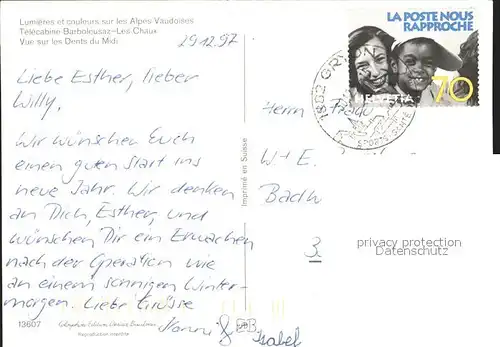 Lumières et couleurs sur les Alpes Vaudoises
Télécabine Barboleusaz-Les Chaux
Vue sur les Dents du Midi
29.12.97
Liebe Esther, lieber
Willy,
Wir wünschen Euch
einen guten Start ins
neue Jahr. Wir denken
an Dich, Esther, und
wünschen Dir ein Erwachen
nach der Operation wie
an einem sonnigen Winter-
morgen. Liebe Grüsse
&
Isabel
13607
Reproduction interdite
Imprimé en Suisse
LA POSTE NOUS
RAPPROCHE
HELVETIA
70
1882 GRYON
SPORTS
Herrn
W + E.
3
privacy protection
Datenschutz